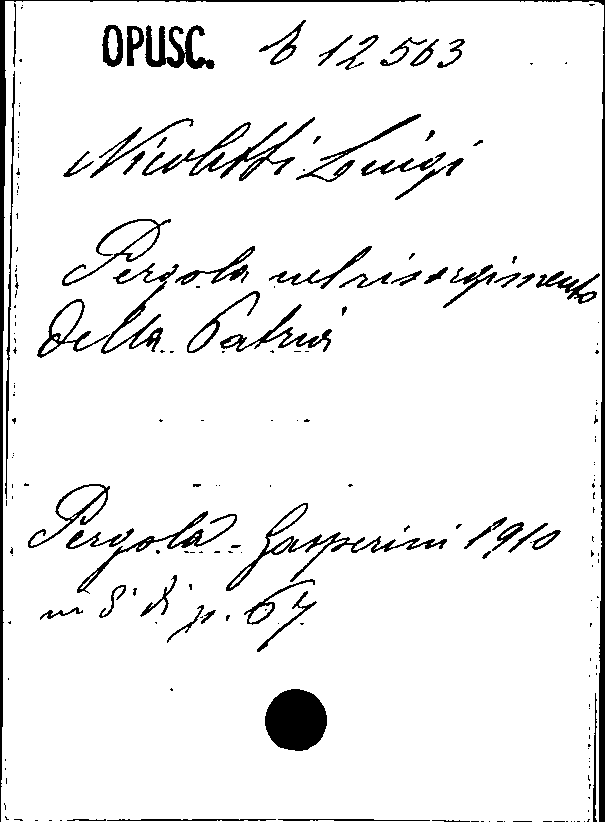 OPUSC. B 12563
Nicoletti Luigi
Pergola nel risorgimento
della Patria
Pergola - Gasperini 1910
in 8° di p. 67